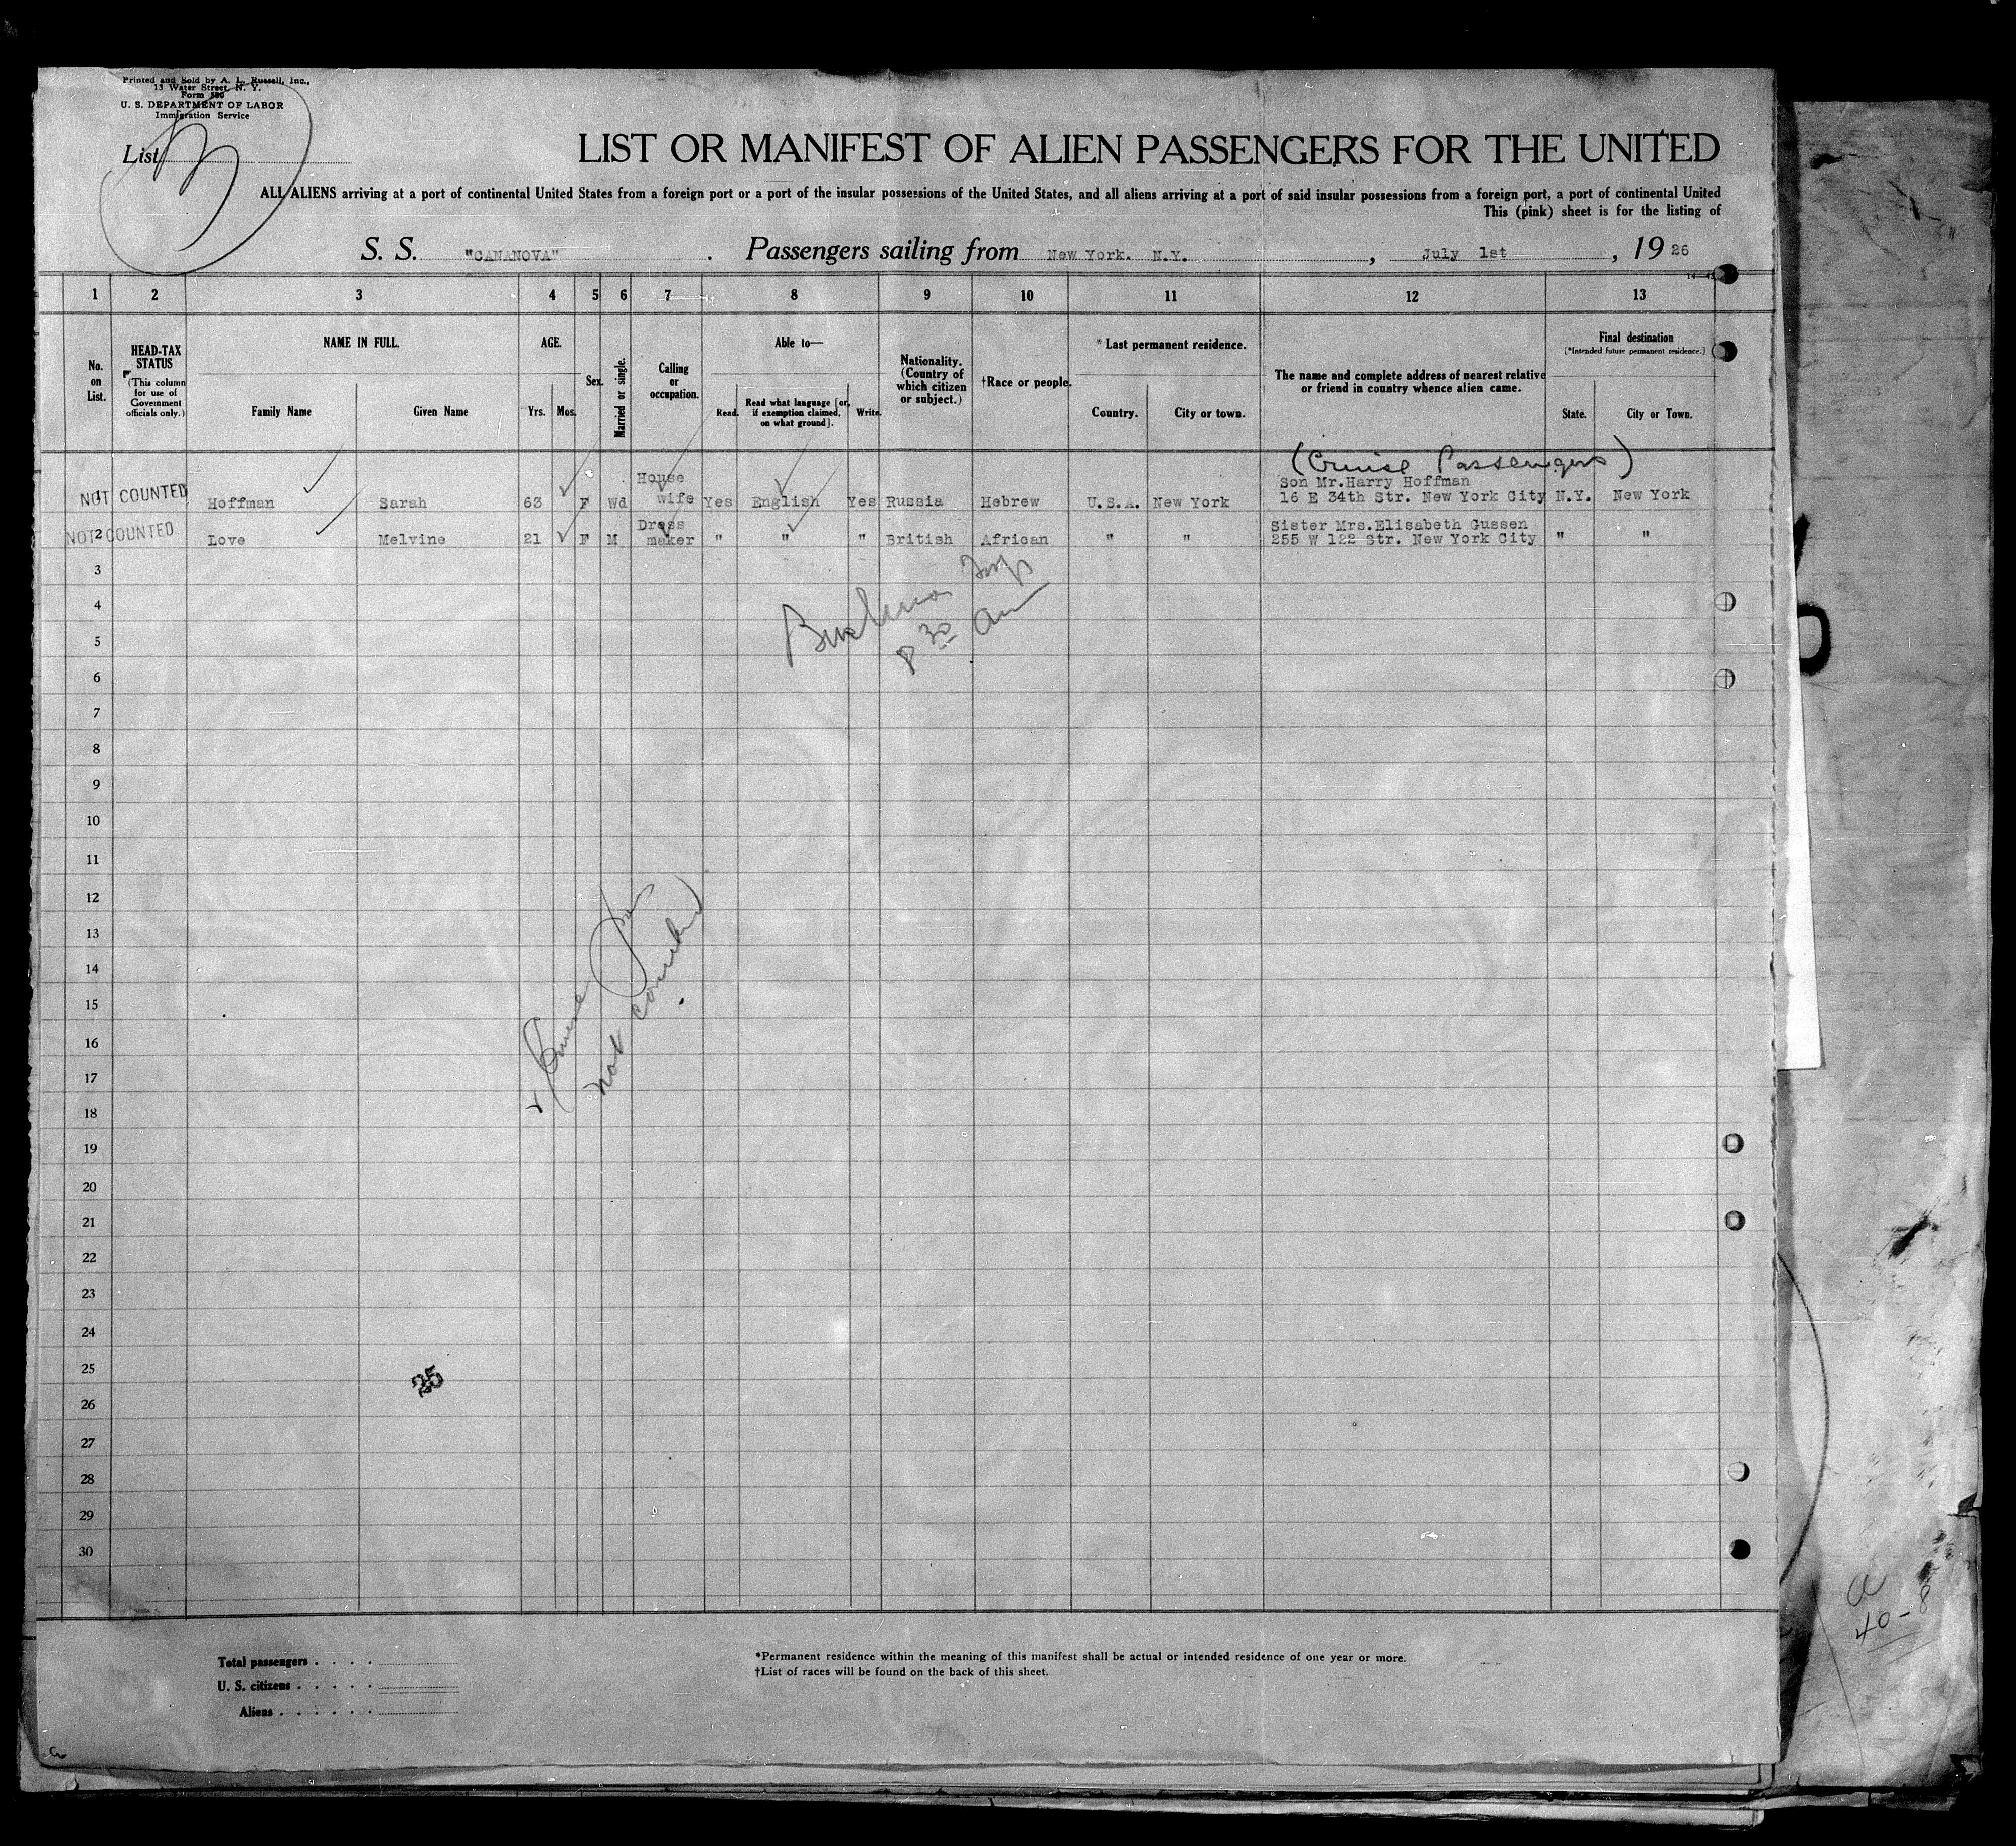 Printed and Sold by A. L. Russell, Inc.,
13 Water Street, N. Y.
Form 500
U. S. DEPARTMENT OF LABOR
Immigration Service
List
LIST OR MANIFEST OF ALIEN PASSENGERS FOR THE UNITED
ALL ALIENS arriving at a port of continental United States from a foreign port or a port of the insular possessions of the United States, and all aliens arriving at a port of said insular possessions from a foreign port, a port of continental United
This (pink) sheet is for the listing of
S. S. "CANANOVA" . Passengers sailing from New York. N.Y. , July 1st , 19 26
1 2 3 4 5 6 7 8 9 10 11 12 13
No. on List.
HEAD-TAX STATUS (This column for use of Government officials only.)
NAME IN FULL.
Family Name
Given Name
AGE.
Yrs. Mos.
Sex.
Married or single.
Calling or occupation.
Able to—
Read.
Read what language [or, if exemption claimed, on what ground].
Write.
Nationality. (Country of which citizen or subject.)
†Race or people.
*Last permanent residence.
Country.
City or town.
The name and complete address of nearest relative or friend in country whence alien came.
Final destination
(*Intended future permanent residence.)
State.
City or Town.
(Cruise Passengers)
1 NOT COUNTED Hoffman Sarah 63 F Wd House wife Yes English Yes Russia Hebrew U.S.A. New York Son Mr.Harry Hoffman 16 E 34th Str. New York City N.Y. New York
2 NOT COUNTED Love Melvine 21 F M Dress maker " " " British African " " Sister Mrs.Elisabeth Gussen 255 W 122 Str. New York City " "
3
4
5
8 30 am
6
7
8
9
10
11
12
13
14
15
16
17
18
19
20
21
22
23
24
25
26
27
28
29
30
Cruise
not counted
25
Total passengers . . . .
U. S. citizens . . . . .
Aliens . . . . . .
*Permanent residence within the meaning of this manifest shall be actual or intended residence of one year or more.
†List of races will be found on the back of this sheet.
40-8